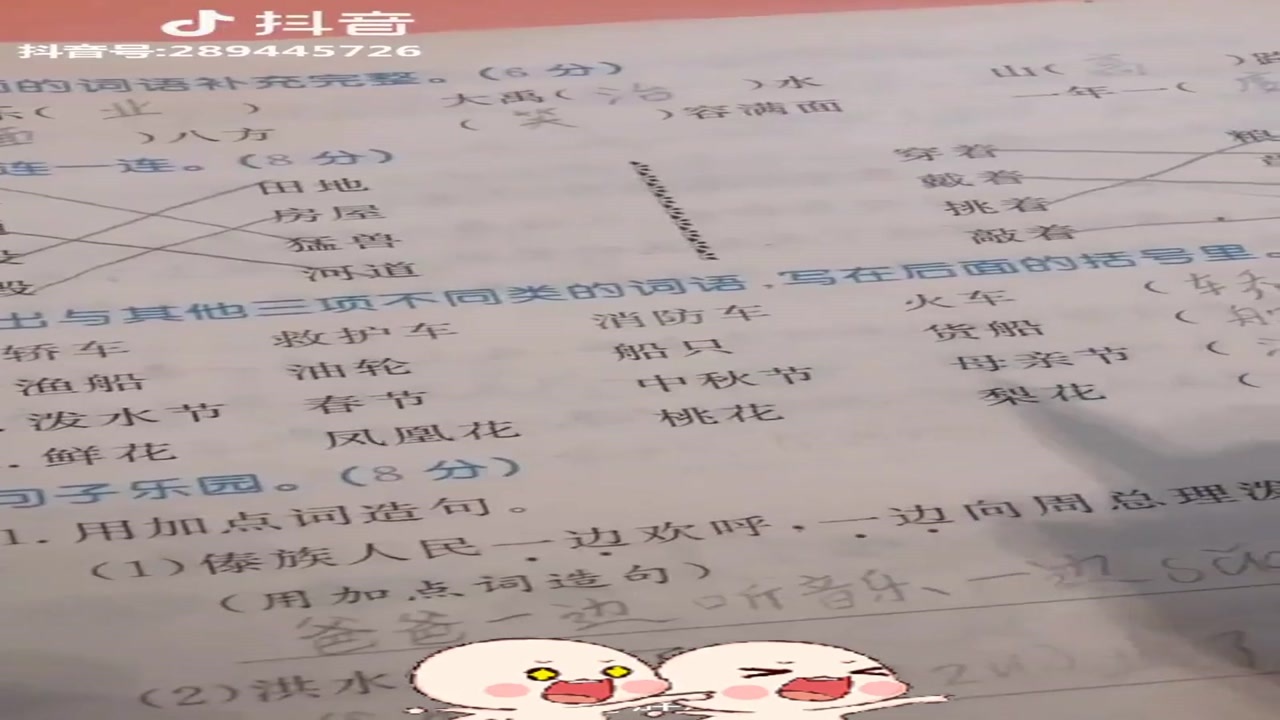 抖音
抖音号:289445726
的词语补充完整。(6 分)
乐( 业 ) 大禹( 治 )水 山( 高 )
)八方 ( 笑 )容满面 一年一(
连一连。(8 分)
田地 穿着
房屋 戴着
猛兽 挑着
河道 敲着
出与其他三项不同类的词语,写在后面的括号里。
轿车 救护车 消防车 火车 (
渔船 油轮 船只 货船 (
泼水节 春节 中秋节 母亲节 (
鲜花 凤凰花 桃花 梨花 (
句子乐园。(8 分)
1. 用加点词造句。
(1)傣族人民一边欢呼,一边向周总理泼
(用加点词造句)
爸爸一边 听音乐、一边
(2)洪水